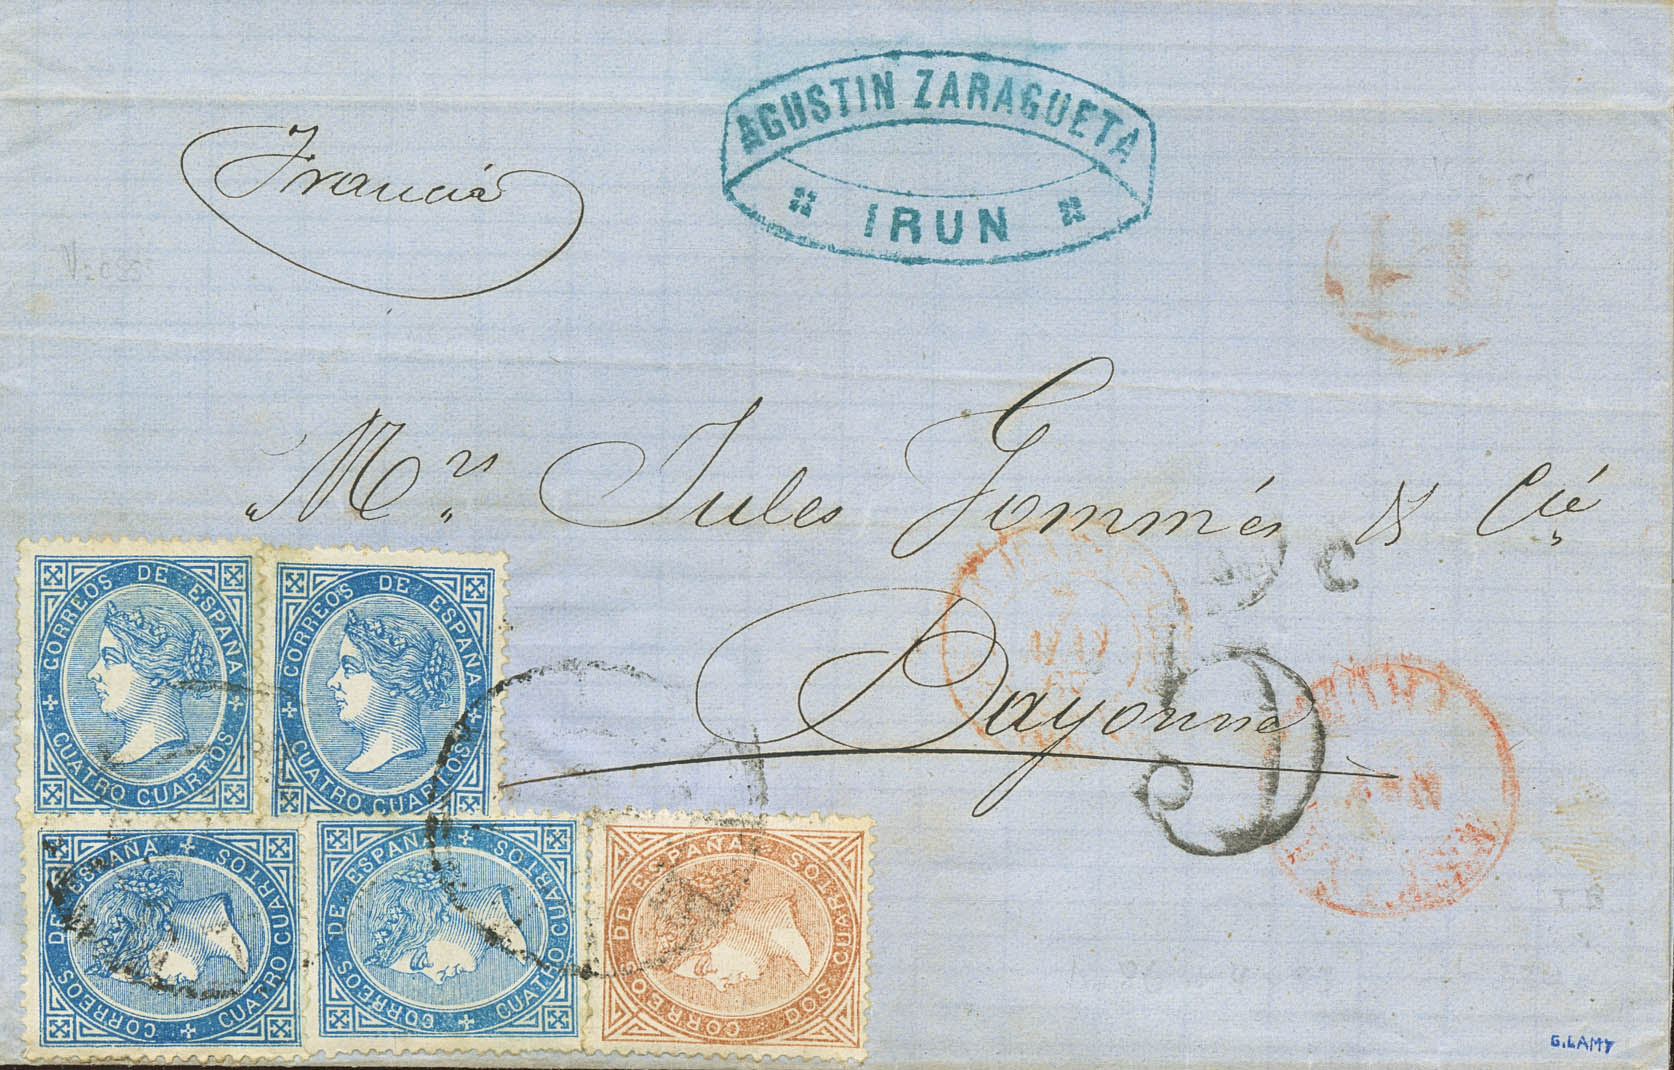 AGUSTIN ZARAGUETA
IRUN
Francia
"Mrs Jules Gommés & Cie"
Bayonne
c
5
CORREOS DE ESPAÑA
CUATRO CUARTOS
CORREOS DE ESPAÑA
CUATRO CUARTOS
CORREOS DE ESPAÑA
CUATRO CUARTOS
CORREOS DE ESPAÑA
CUATRO CUARTOS
CORREO DE ESPAÑA
DOS CUARTOS
G.LAMY